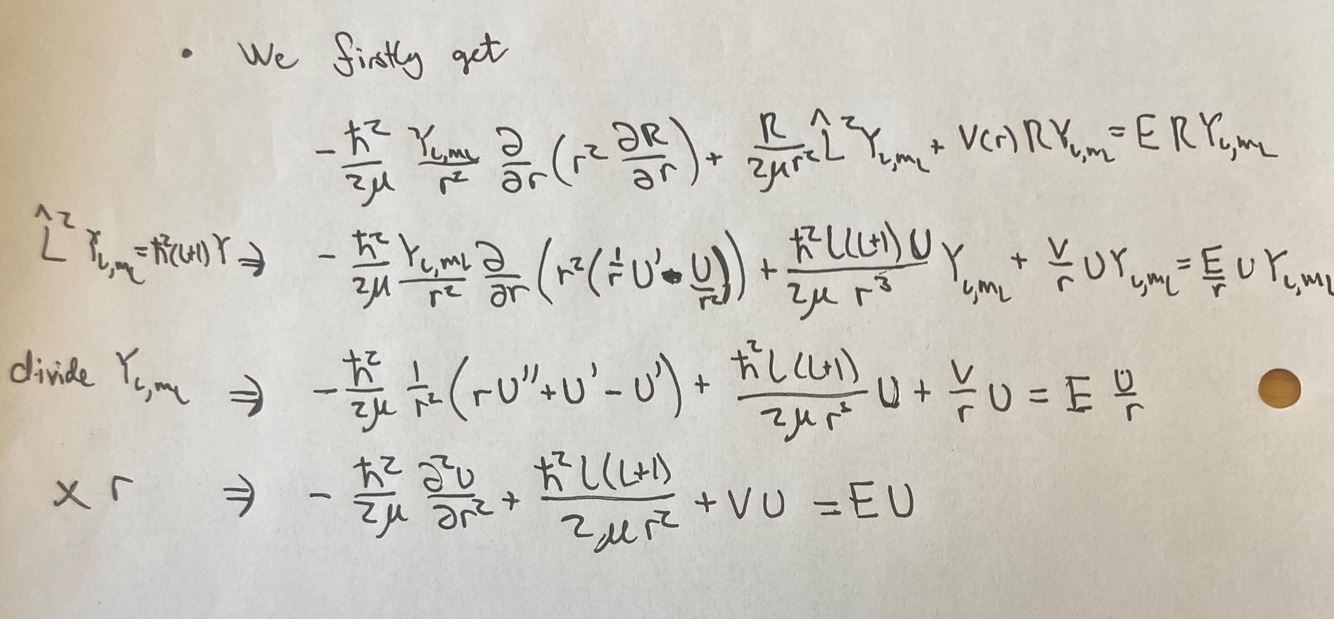 • We firstly get
-ħ²/2μ Y_{l,m_l}/r² ∂/∂r (r² ∂R/∂r) + R/2μr² L̂² Y_{l,m_l} + V(r) R Y_{l,m_l} = E R Y_{l,m_l}
L̂² Y_{l,m_l} = ħ²l(l+1) Y ⇒ -ħ²/2μ Y_{l,m_l}/r² ∂/∂r (r² (1/r U' - U/r²)) + ħ² l(l+1) U/2μ r³ Y_{l,m_l} + V/r U Y_{l,m_l} = E/r U Y_{l,m_l}
divide Y_{l,m_l} ⇒ -ħ²/2μ 1/r² (r U'' + U' - U') + ħ² l(l+1)/2μ r³ U + V/r U = E U/r
× r ⇒ -ħ²/2μ ∂²U/∂r² + ħ² l(l+1)/2μ r² + V U = E U